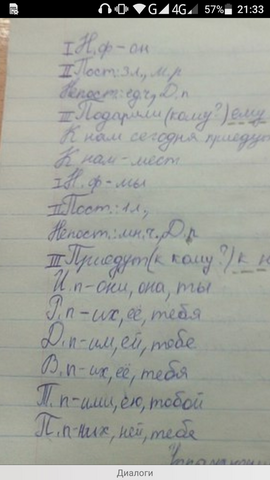 57% 21:33
I Н.ф-он
II Пост: 3л., м.р
Непост: ед.ч., Д.п
III Подарили (кому?) ему
К нам сегодня приедут
К нам-мест
I Н.ф-мы
II Пост: 1л.,
Непост: мн.ч, Д.р
III Приедут (к кому?) к н
И.п-они, она, ты
Р.п-их, её, тебя
Д.п-им, ей, тобе
В.п-их, её, тебя
Т.п-ими, ею, тобой
П.п-них, ней, тебе
Диалоги